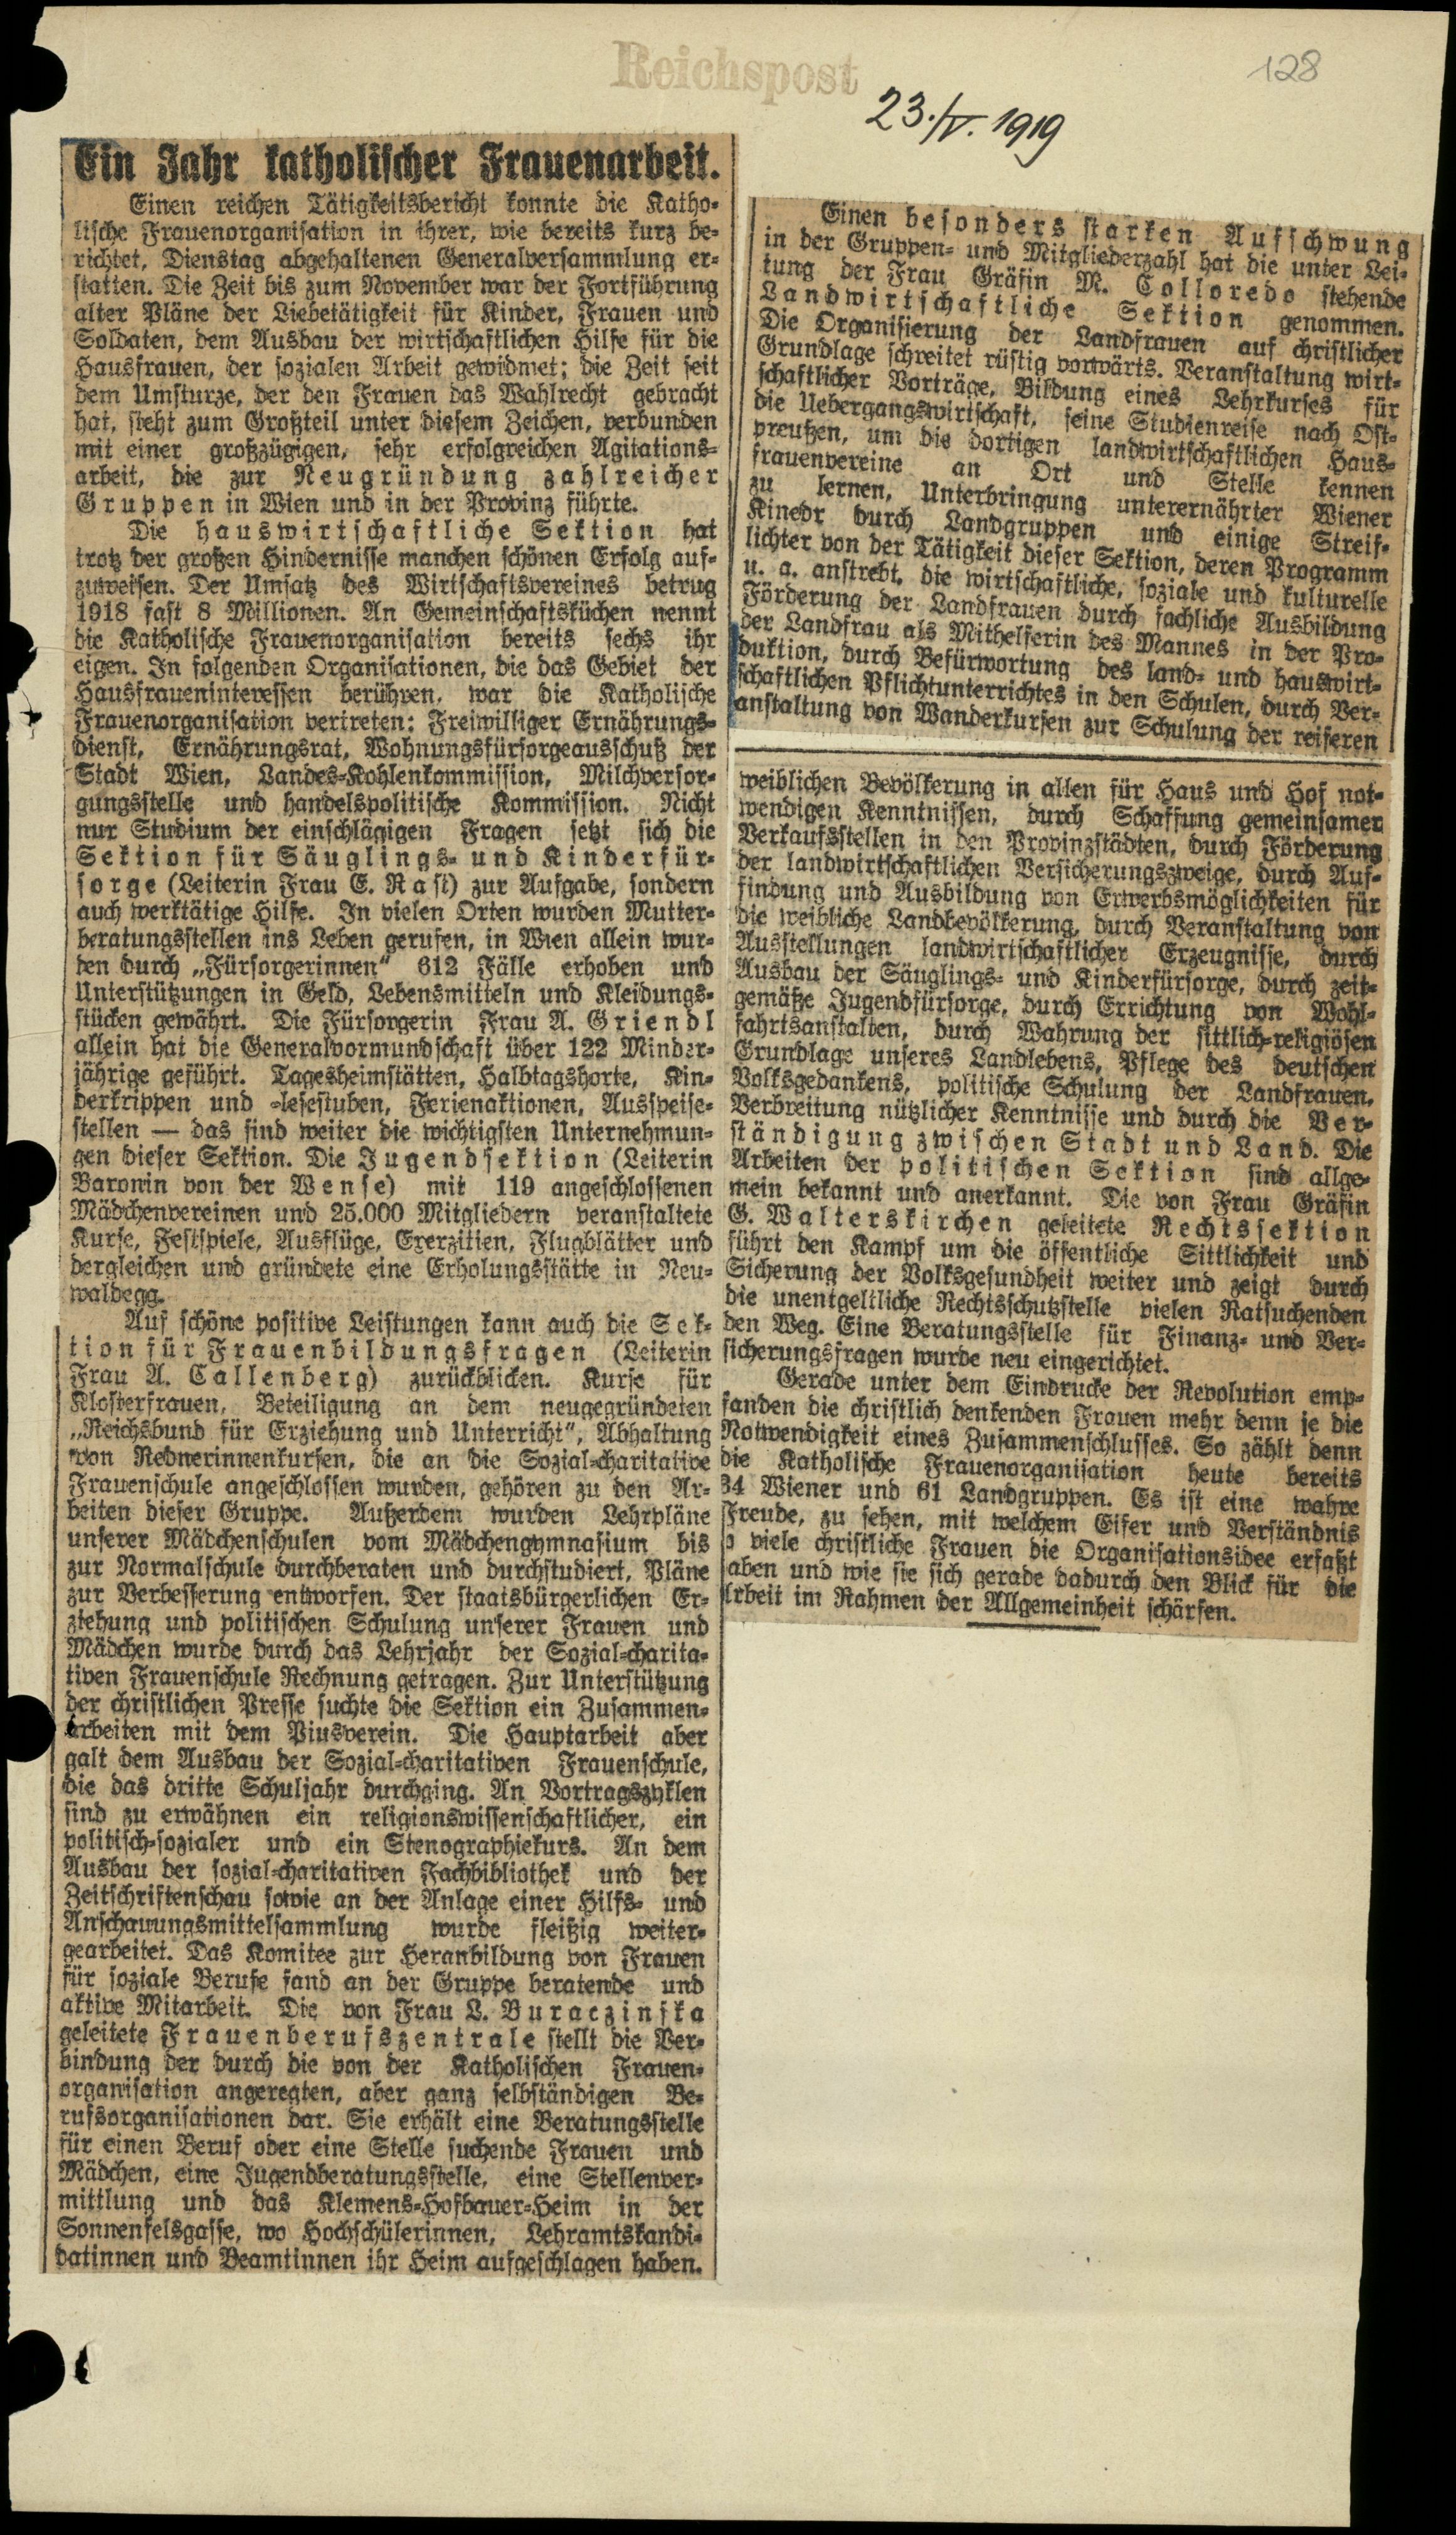 Reichspost
128
23./V. 1919
Ein Jahr katholischer Frauenarbeit.
Einen reichen Tätigkeitsbericht konnte die Katho-
lische Frauenorganisation in ihrer, wie bereits kurz be-
richtet, Dienstag abgehaltenen Generalversammlung er-
statten. Die Zeit bis zum November war der Fortführung
alter Pläne der Liebetätigkeit für Kinder, Frauen und
Soldaten, dem Ausbau der wirtschaftlichen Hilfe für die
Hausfrauen, der sozialen Arbeit gewidmet; die Zeit seit
dem Umsturze, der den Frauen das Wahlrecht gebracht
hat, steht zum Großteil unter diesem Zeichen, verbunden
mit einer großzügigen, sehr erfolgreichen Agitations-
arbeit, die zur Neugründung zahlreicher
Gruppen in Wien und in der Provinz führte.
Die hauswirtschaftliche Sektion hat
trotz der großen Hindernisse manchen schönen Erfolg auf-
zuweisen. Der Umsatz des Wirtschaftsvereines betrug
1918 fast 8 Millionen. An Gemeinschaftsküchen nennt
die Katholische Frauenorganisation bereits sechs ihr
eigen. In folgenden Organisationen, die das Gebiet der
Hausfraueninteressen berühren, war die Katholische
Frauenorganisation vertreten: Freiwilliger Ernährungs-
dienst, Ernährungsrat, Wohnungsfürsorgeausschuß der
Stadt Wien, Landes-Kohlenkommission, Milchversor-
gungsstelle und handelspolitische Kommission. Nicht
nur Studium der einschlägigen Fragen setzt sich die
Sektion für Säuglings- und Kinderfür-
sorge (Leiterin Frau E. Rast) zur Aufgabe, sondern
auch werktätige Hilfe. In vielen Orten wurden Mutter-
beratungsstellen ins Leben gerufen, in Wien allein wur-
den durch „Fürsorgerinnen“ 612 Fälle erhoben und
Unterstützungen in Geld, Lebensmitteln und Kleidungs-
stücken gewährt. Die Fürsorgerin Frau A. Griendl
allein hat die Generalvormundschaft über 122 Minder-
jährige geführt. Tagesheimstätten, Halbtagshorte, Kin-
derkrippen und -lesestuben, Ferienaktionen, Ausspeise-
stellen — das sind weiter die wichtigsten Unternehmun-
gen dieser Sektion. Die Jugendsektion (Leiterin
Baronin von der Wense) mit 119 angeschlossenen
Mädchenvereinen und 25.000 Mitgliedern veranstaltete
Kurse, Festspiele, Ausflüge, Exerzitien, Flugblätter und
dergleichen und gründete eine Erholungsstätte in Neu-
waldegg.
Auf schöne positive Leistungen kann auch die Sek-
tion für Frauenbildungsfragen (Leiterin
Frau A. Callenberg) zurückblicken. Kurse für
Klosterfrauen, Beteiligung an dem neugegründeten
„Reichsbund für Erziehung und Unterricht“, Abhaltung
von Rednerinnenkursen, die an die Sozial-charitative
Frauenschule angeschlossen wurden, gehören zu den Ar-
beiten dieser Gruppe. Außerdem wurden Lehrpläne
unserer Mädchenschulen vom Mädchengymnasium bis
zur Normalschule durchberaten und durchstudiert, Pläne
zur Verbesserung entworfen. Der staatsbürgerlichen Er-
ziehung und politischen Schulung unserer Frauen und
Mädchen wurde durch das Lehrjahr der Sozial-charita-
tiven Frauenschule Rechnung getragen. Zur Unterstützung
der christlichen Presse suchte die Sektion ein Zusammen-
arbeiten mit dem Piusverein. Die Hauptarbeit aber
galt dem Ausbau der Sozial-charitativen Frauenschule,
die das dritte Schuljahr durchging. An Vortragszyklen
sind zu erwähnen ein religionswissenschaftlicher, ein
politisch-sozialer und ein Stenographiekurs. An dem
Ausbau der sozial-charitativen Fachbibliothek und der
Zeitschriftenschau sowie an der Anlage einer Hilfs- und
Anschauungsmittelsammlung wurde fleißig weiter-
gearbeitet. Das Komitee zur Heranbildung von Frauen
für soziale Berufe fand an der Gruppe beratende und
aktive Mitarbeit. Die von Frau L. Buraczinska
geleitete Frauenberufszentrale stellt die Ver-
bindung der durch die von der Katholischen Frauen-
organisation angeregten, aber ganz selbständigen Be-
rufsorganisationen dar. Sie erhält eine Beratungsstelle
für einen Beruf oder eine Stelle suchende Frauen und
Mädchen, eine Jugendberatungsstelle, eine Stellenver-
mittlung und das Klemens-Hofbauer-Heim in der
Sonnenfelsgasse, wo Hochschülerinnen, Lehramtskandi-
datinnen und Beamtinnen ihr Heim aufgeschlagen haben.
Einen besonders starken Aufschwung
in der Gruppen- und Mitgliederzahl hat die unter Lei-
tung der Frau Gräfin M. Colloredo stehende
Landwirtschaftliche Sektion genommen.
Die Organisierung der Landfrauen auf christlicher
Grundlage schreitet rüstig vorwärts. Veranstaltung wirt-
schaftlicher Vorträge, Bildung eines Lehrkurses für
die Uebergangswirtschaft, seine Studienreise nach Ost-
preußen, um die dortigen landwirtschaftlichen Haus-
frauenvereine an Ort und Stelle kennen
zu lernen, Unterbringung unterernährter Wiener
Kinedr durch Landgruppen und einige Streif-
lichter von der Tätigkeit dieser Sektion, deren Programm
u. a. anstrebt, die wirtschaftliche, soziale und kulturelle
Förderung der Landfrauen durch fachliche Ausbildung
der Landfrau als Mithelferin des Mannes in der Pro-
duktion, durch Befürwortung des land- und hauswirt-
schaftlichen Pflichtunterrichtes in den Schulen, durch Ver-
anstaltung von Wanderkursen zur Schulung der reiferen
weiblichen Bevölkerung in allen für Haus und Hof not-
wendigen Kenntnissen, durch Schaffung gemeinsamer
Verkaufsstellen in den Provinzstädten, durch Förderung
der landwirtschaftlichen Versicherungszweige, durch Auf-
findung und Ausbildung von Erwerbsmöglichkeiten für
die weibliche Landbevölkerung, durch Veranstaltung von
Ausstellungen landwirtschaftlicher Erzeugnisse, durch
Ausbau der Säuglings- und Kinderfürsorge, durch zeit-
gemäße Jugendfürsorge, durch Errichtung von Wohl-
fahrtsanstalten, durch Wahrung der sittlich-religiösen
Grundlage unseres Landlebens, Pflege des deutschen
Volksgedankens, politische Schulung der Landfrauen,
Verbreitung nützlicher Kenntnisse und durch die Ver-
ständigung zwischen Stadt und Land. Die
Arbeiten der politischen Sektion sind allge-
mein bekannt und anerkannt. Die von Frau Gräfin
G. Walterskirchen geleitete Rechtssektion
führt den Kampf um die öffentliche Sittlichkeit und
Sicherung der Volksgesundheit weiter und zeigt durch
die unentgeltliche Rechtsschutzstelle vielen Ratsuchenden
den Weg. Eine Beratungsstelle für Finanz- und Ver-
sicherungsfragen wurde neu eingerichtet.
Gerade unter dem Eindrucke der Revolution emp-
fanden die christlich denkenden Frauen mehr denn je die
Notwendigkeit eines Zusammenschlusses. So zählt denn
die Katholische Frauenorganisation heute bereits
34 Wiener und 61 Landgruppen. Es ist eine wahre
Freude, zu sehen, mit welchem Eifer und Verständnis
o viele christliche Frauen die Organisationsidee erfaßt
aben und wie sie sich gerade dadurch den Blick für die
Arbeit im Rahmen der Allgemeinheit schärfen.